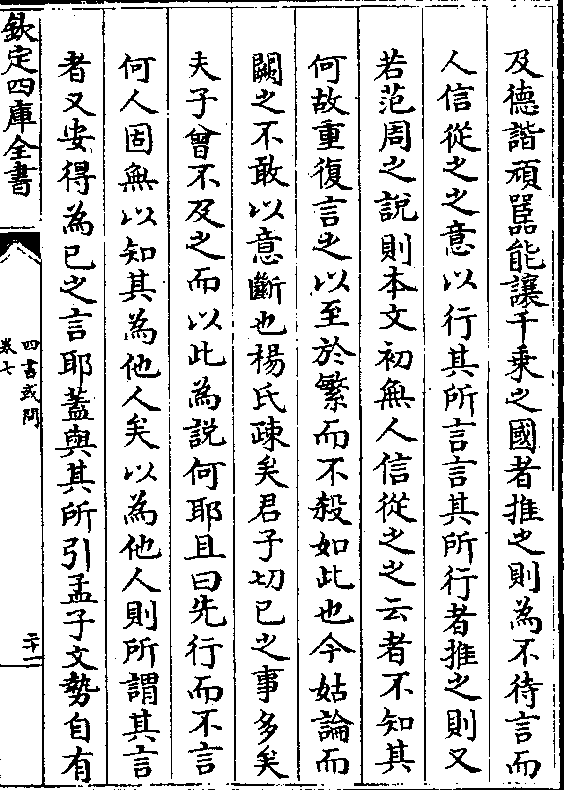 及德諧頑嚚能讓千乗之國者推之則為不待言而
人信從之之意以行其所言言其所行者推之則又
若范周之說則本文初無人信從之之云者不知其
何故重復言之以至於繁而不殺如此也今姑論而
闕之不敢以意斷也楊氏疎矣君子切已之事多矣
夫子曾不及之而以此為説何耶且曰先行而不言
何人固無以知其為他人矣以為他人則所謂其言
者又安得為已之言耶蓋與其所引孟子文勢自有
欽定四庫全書
四書或問
卷七
二十一